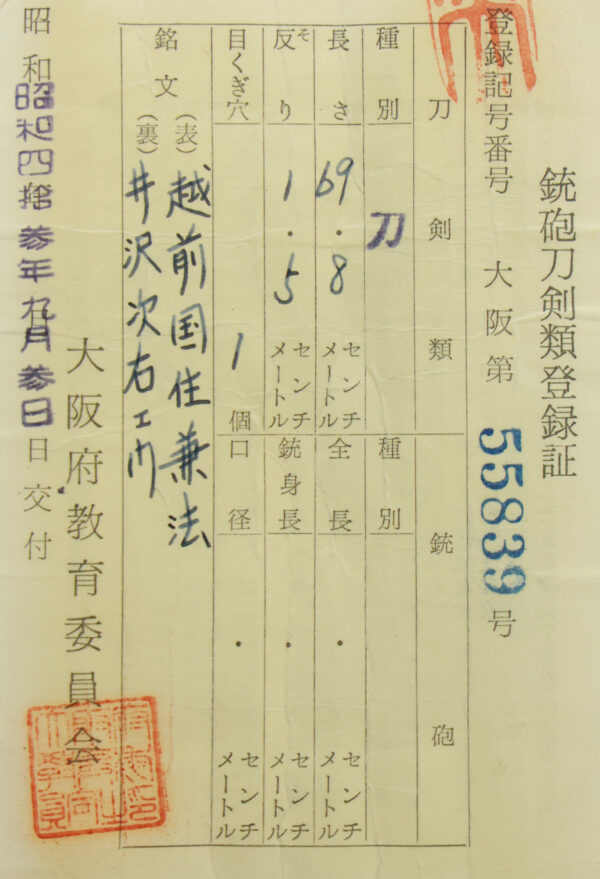 銃砲刀剣類登録証
登録記号番号 大阪第 55839 号
刀剣類 銃砲
種別 刀 種別
長さ 69.8 センチメートル 全長 ・ センチメートル
反り そ 1.5 センチメートル 銃身長 ・ センチメートル
目くぎ穴 1 個 口径 ・ センチメートル
銘文 (表) 越前国住兼法
(裏) 井沢次右エ门
大阪府教育委員会
昭和 昭和四拾参年九月参日 日交付